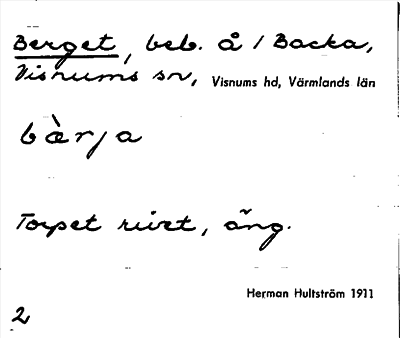 Berget, beb. å 1 Backa,
Visnums sn, Visnums hd, Värmlands län
bàrja
Torpet rivet, äng.
Herman Hultström 1911
2